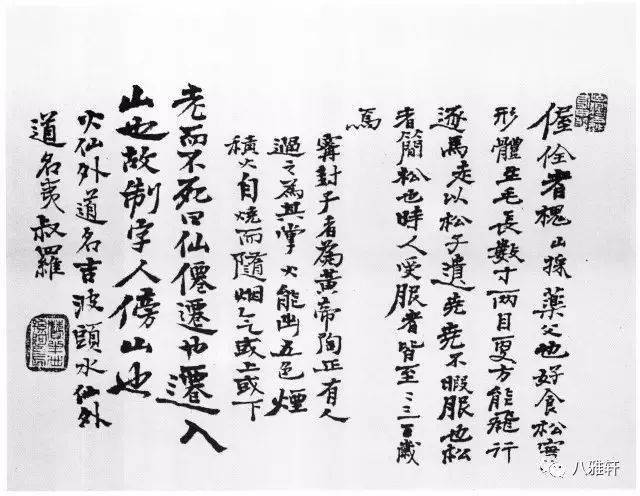 偓佺者槐山採藥父也好食松實
形體生毛長數寸兩目更方能飛行
逐馬走以松子遺堯堯不暇服也松
者簡松也時人受服者皆至二三百歲
焉
甯封子者為黃帝陶正有人
過之為其掌火能出五色煙
積火自燒而隨烟气或上或下
老而不死曰仙僊遷也遷入
山也故制字人傍山也
火仙外道名吉波頭水仙外
道名夷叔羅
八雅轩